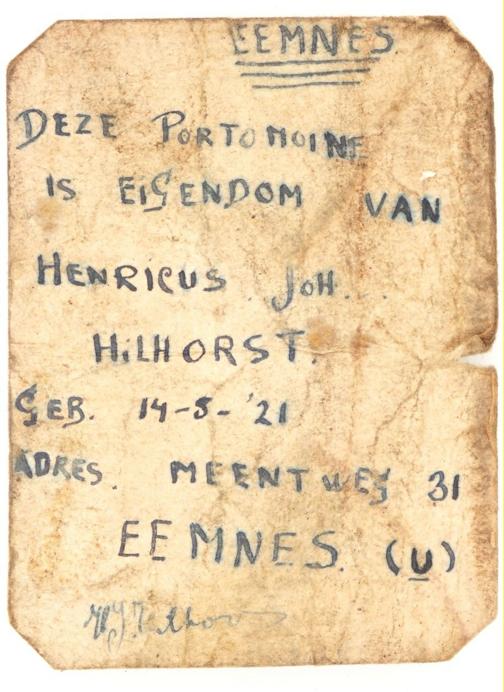 EEMNES
DEZE PORTOMOINE
IS EiGENDOM VAN
HENRICUS JOH.
HiLHORST.
GEB. 14-5-'21
ADRES. MEENTWEG 31
EEMNES. (U)